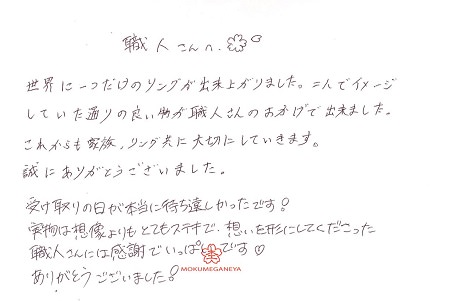 職人さんへ.
世界に一つだけのリングが出来上がりました。二人でイメージ
していた通りの良い物が職人さんのおかげで出来ました。
これからも家族,リング共に大切にしていきます。
誠にありがとうございました。
受け取りの日が本当に待ち遠しかったです!
実物は想像よりもとてもステキで、想いを形にしてくださった
職人さんには感謝でいっぱいです♡
ありがとうございました!
MOKUMEGANEYA